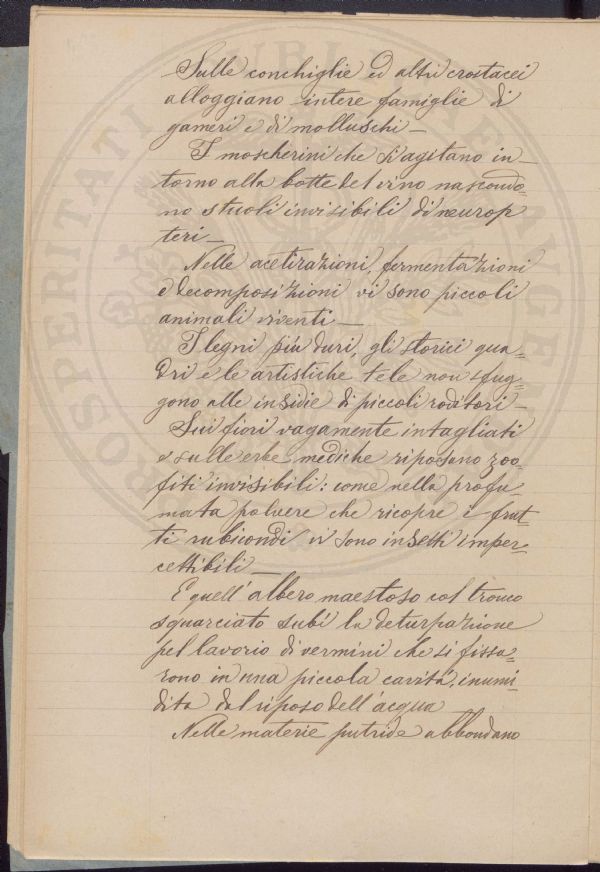 Sulle conchiglie ed altri crostacei
alloggiano intere famiglie di
gameri e di molluschi —
I moscherini che s'agitano in-
torno alla botte del vino nascondo-
no stuoli invisibili di neurop
teri —
Nelle acetirazioni, fermentazioni
e decomposizioni vi sono piccoli
animali viventi —
I legni più duri, gli storici qua-
dri e le artistiche tele non sfug-
gono alle insidie di piccoli roditori —
Sui fiori vagamente intagliati
e sulle erbe mediche riposano zoo-
fiti invisibili: come nella profu-
mata polvere che ricopre i frut-
ti rubicondi vi sono insetti imper-
cettibili —
E quell'albero maestoso col tronco
squarciato subì la deturpazione
pel lavorio di vermini che si fissa-
rono in una piccola cavità, inumi-
dita dal riposo dell'acqua
Nelle materie putride abbondano